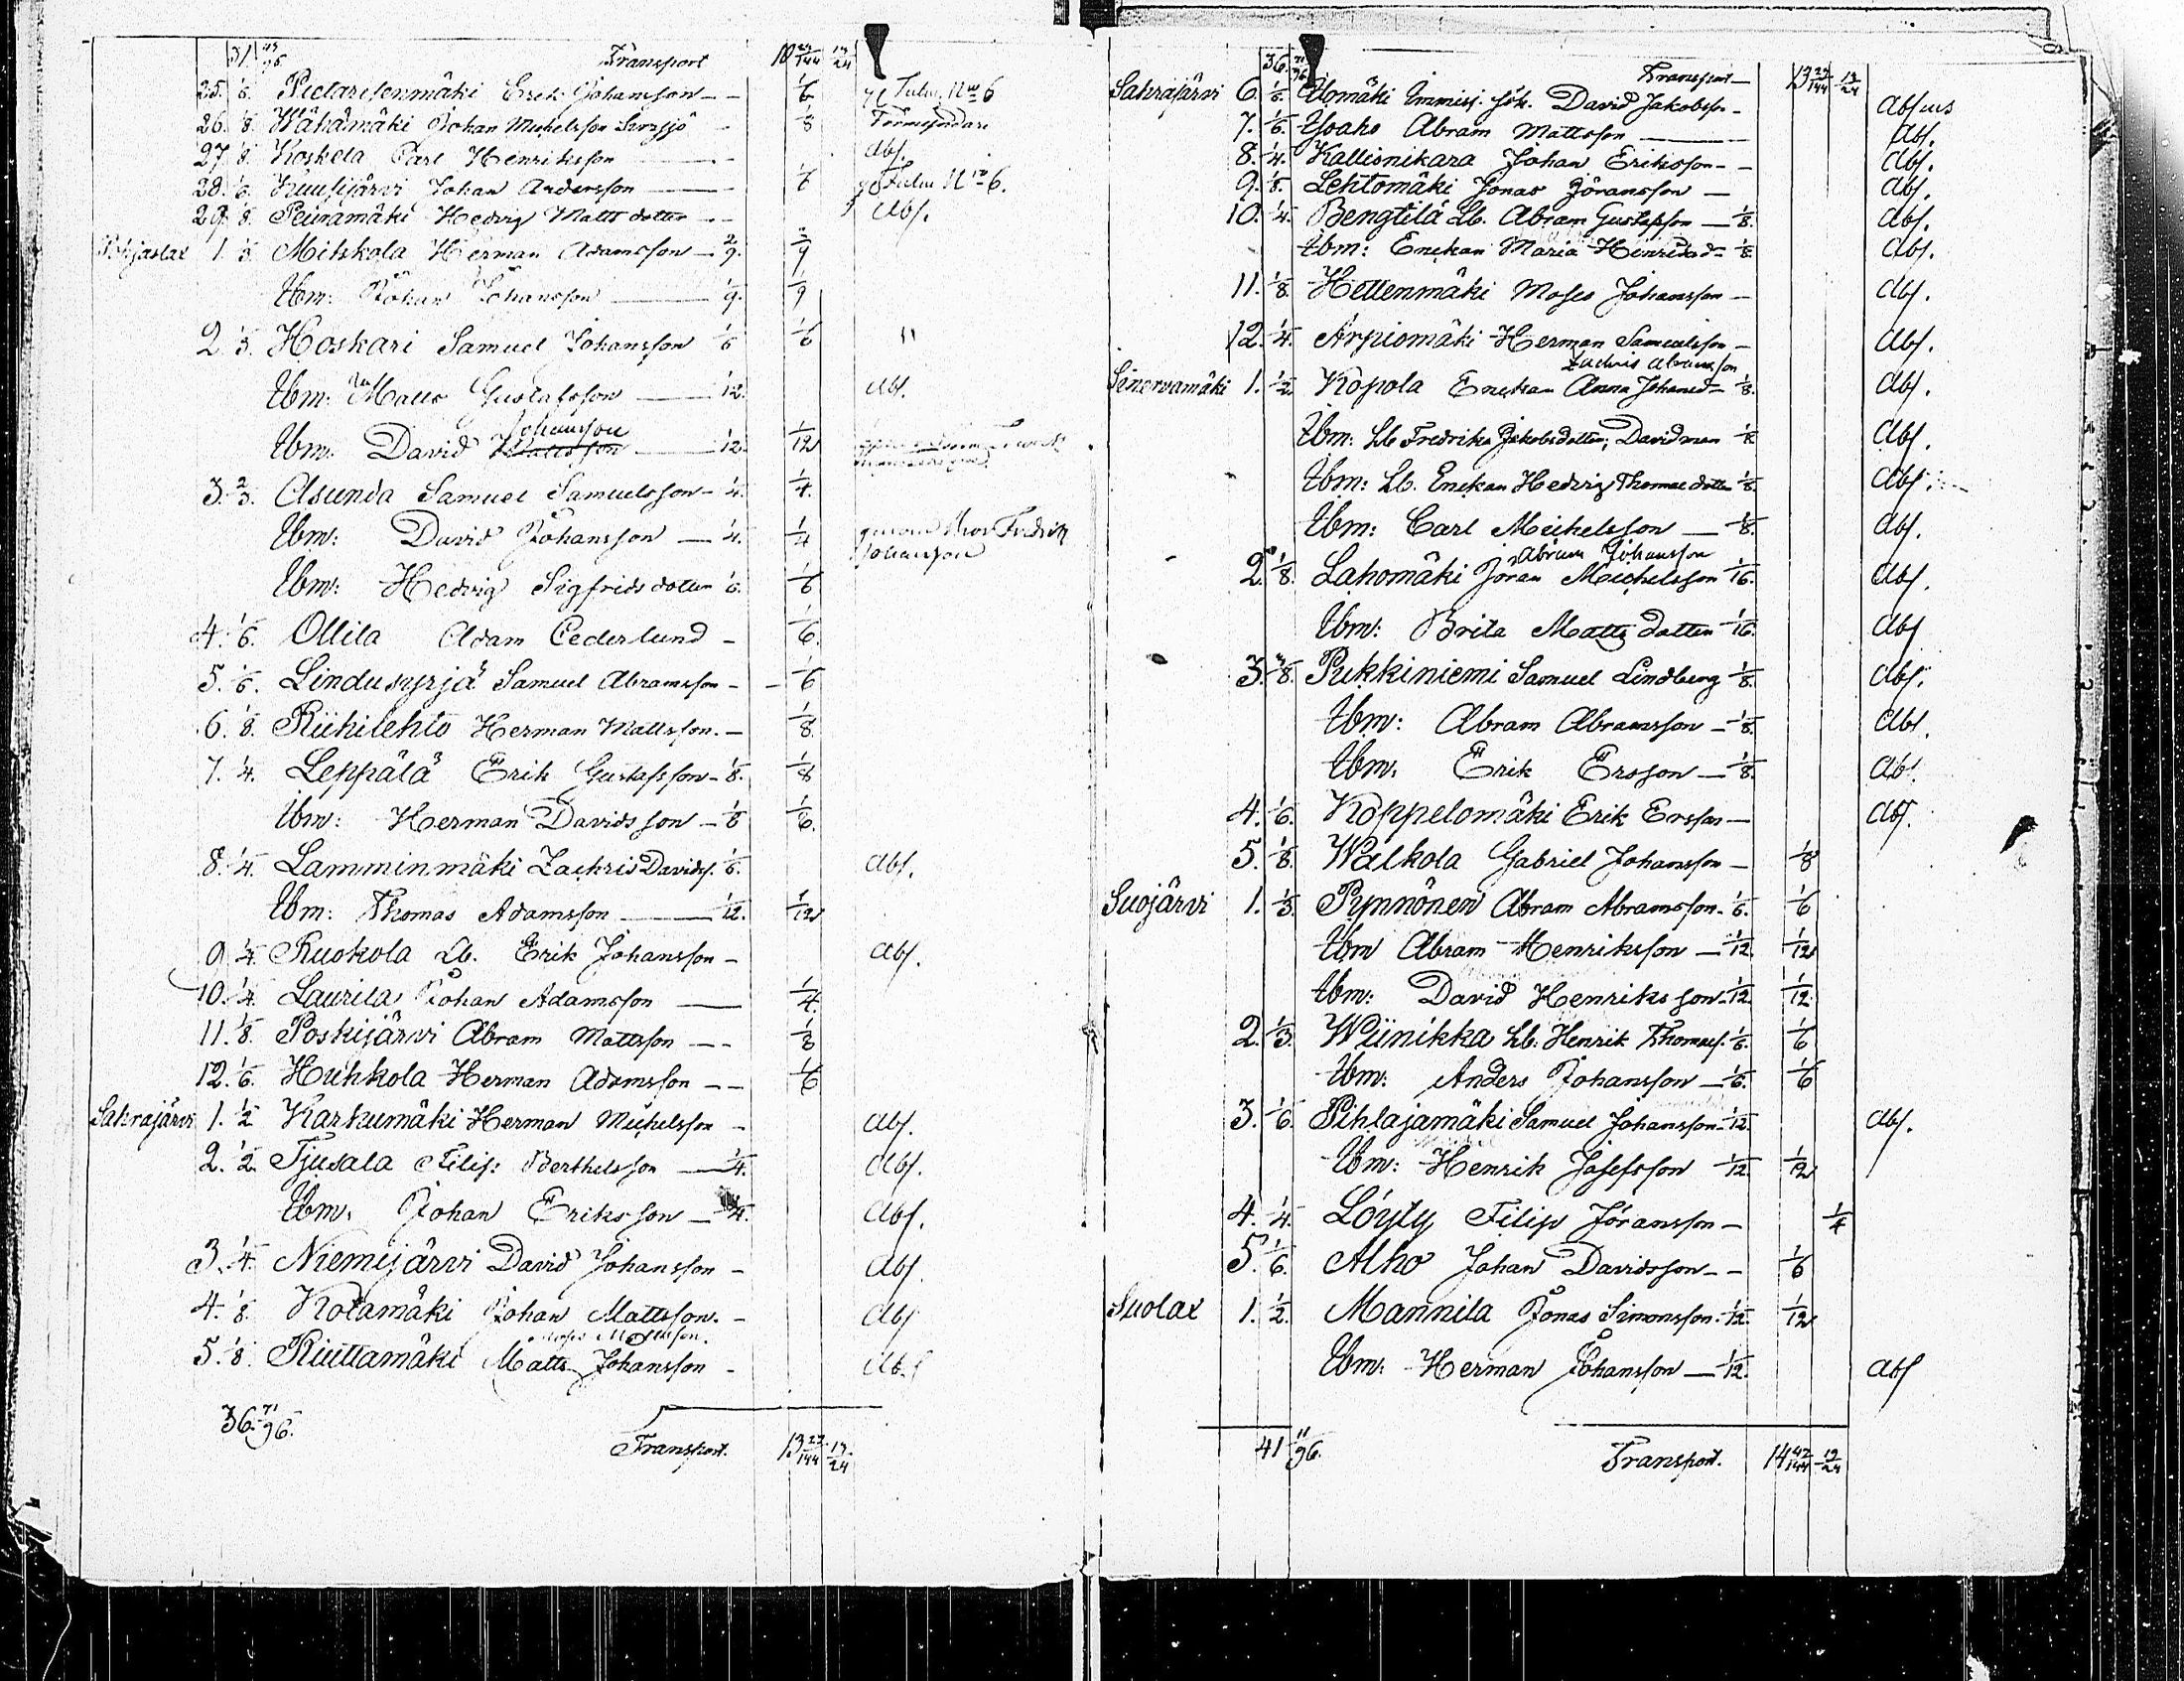 31. 43/96 Transport 10 29/144 19/24
25. 1/6. Pietarisenmäki Erik Johansson - - 1/6 Tulu. N:o 6
26. 1/8 Wähämäki Johan Michelsson - 1/8
27. 1/8 Koskela Carl Henriksson - Abs.
28. 1/6. Kuusijärvi Johan Andersson - 1/6 Tulu N:o 6.
29. 1/8 Peuramäki Hedvig Matts dotter - - Abs.
Pohjaslax 1. 1/3 Mitskola Herman Adamsson - 2/9. 2/9
Ibm: Johan Johansson - 1/9. 1/9
2. 1/3. Hoskari Samuel Johansson 1/6 1/6 "
Ibm: Matts Gustafsson - 1/12. Abs.
Johansson
Ibm: David Mattsson - 1/12. 1/12
3. 2/3. Asunda Samuel Samuelsson - 1/4. 1/4.
Ibm: David Johansson - 1/4. 1/4 genom Fredrik
Johansson
Ibm: Hedvig Sigfrids dotter 1/6. 1/6
4. 1/6. Ollila Adam Cederlund - 1/6.
5. 1/6. Lindusyrjä Samuel Abramsson - - 1/6
6. 1/8. Riihilehto Herman Mattsson. - 1/8.
7. 1/4. Leppälä Erik Gustafsson - 1/8. 1/8
Ibm: Herman Davidsson - 1/8 1/6.
8. 1/4. Lamminmäki Zachris Davids. 1/6. Abs.
Ibm: Thomas Adamsson - 1/12. 1/12
9 1/4. Ruokola Lb. Erik Johansson - Abs.
10. 1/4. Laurila Johan Adamsson - 1/4.
11. 1/8. Poskijärvi Abram Mattsson - - 1/8
12. 1/6. Huhkola Herman Adamsson - - 1/6
Sahrajärvi 1. 1/2 Karkumäki Herman Michelsson - Abs.
2. 1/2. Tjusala Filip: Berthelsson - 1/4. Abs.
Ibm. Johan Eriksson - 1/4. Abs.
3. 1/4. Niemijärvi David Johansson - Abs.
4. 1/8. Kotamäki Johan Mattsson. - Abs
Moses Mattsson.
5. 1/8. Riuttamäki Matts Johansson - Abs
36. 71/96.
Transport. 13 23/144 19/24
36. 71/96 Transport - 13 23/144 19/24
Sahrajärvi 6. 1/6. Ulomäki Joh. David Jakobsson - Absens
7. 1/6. Ysaho Abram Mattsson - Abs.
8. 1/4. Kallionikara Johan Eriksson - - Abs.
9. 1/8. Lehtomäki Jonas Göransson - Abs.
10. 1/4. Bengtilä Lb. Abram Gustafsson - 1/8. Abs.
Ibm: Enckan Maria Henriksd - 1/8. Abs.
11. 1/8. Hettenmäki Moses Johansson - Abs.
12. 1/4. Arpiomäki Herman Samuelsson - Abs.
Zachris Abramsson
Sinervamäki 1. 1/2. Kopola Enckan Anna Johansd - 1/8. Abs.
Ibm: Lb Fredrika Jakobsdotter; Davidman 1/8. Abs.
Ibm: Lb. Enckan Hedvig Thomae dotter 1/8. Abs.
Ibm: Carl Michelsson - 1/8. Abs.
Abram Johansson
2. 1/8. Lahomäki Jöran Michelsson 1/16. Abs.
Ibm: Brita Matts dotter 1/16. Abs
3. 3/8. Pukkiniemi Samuel Lindberg 1/8. Abs.
Ibm: Abram Abramsson - 1/8. Abs.
Ibm. Erik Ersson - 1/8. Abs.
4. 1/6. Koppelomäki Erik Ersson - Abs.
5. 1/8. Walkola Gabriel Johansson - 1/8
Suojärvi 1. 1/3. Pynnönen Abram Abramsson - 1/6. 1/6
Ibm Abram Henriksson - 1/12. 1/12
Ibm: David Henriksson - 1/12. 1/12.
2. 1/3. Wiinikka Lb. Henrik Thomas. 1/6. 1/6
Ibm: Anders Johansson - 1/6. 1/6
3. 1/6. Pihlajamäki Samuel Johansson - 1/12. Abs.
Ibm: Henrik Josefsson 1/12 1/12
4. 1/4. Löyty Filip Jöransson - 1/4
5. 1/6. Alho Johan Davidsson - - 1/6
Suolax 1. 1/2. Mannila Jonas Simonsson. 1/12. 1/12
Ibm: Herman Johansson - 1/12. Abs
41 11/96.
Transport. 14 42/144 19/24